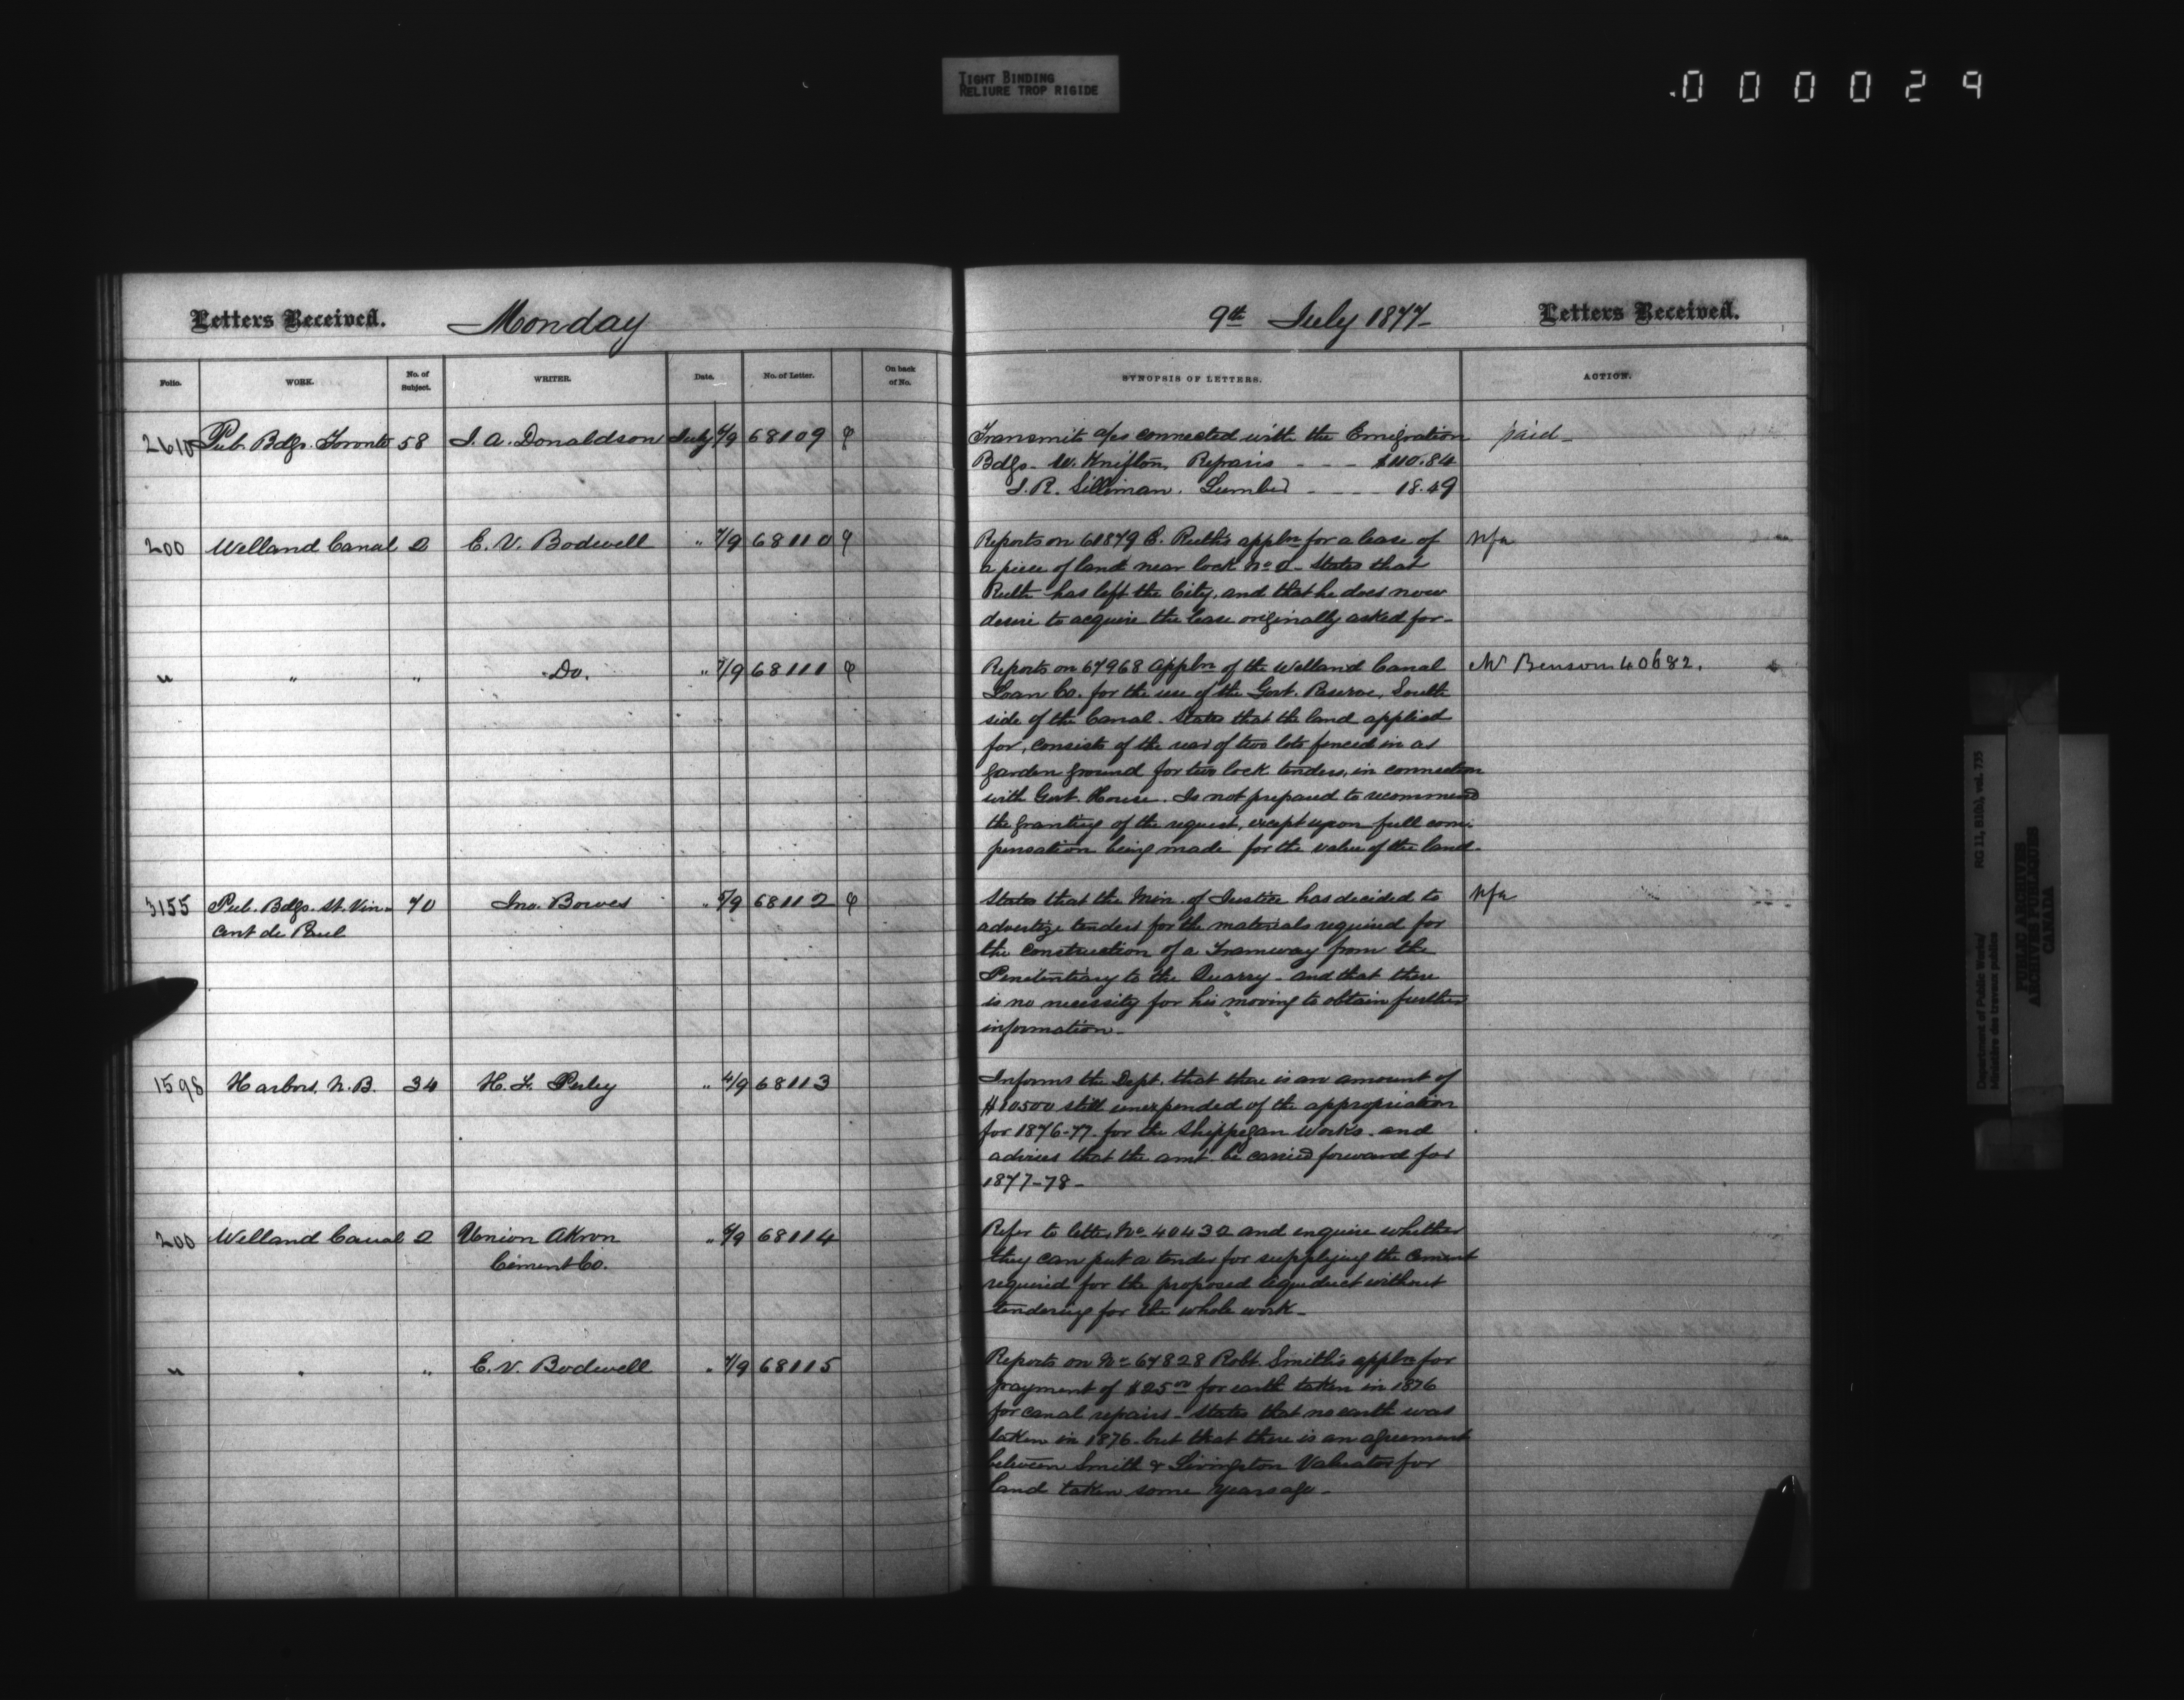 TIGHT BINDING
RELIURE TROP RIGIDE
000029
Letters Received. Monday
Folio. WORK. No. of Subject. WRITER. Date. No. of Letter. On back of No.
2610 Pub. Bdgs. Toronto 58 J. A. Donaldson July 7/9 68109
200 Welland Canal 2 E. V. Bodwell " 7/9 68110
" " " Do. " 7/9 68111
3155 Pub. Bdgs. St. Vin- 70 Jno. Bowes " 5/9 68112
cent de Paul
1598 Harbors. N.B. 34 H. F. Perley " 4/9 68113
200 Welland Canal 2 Union Akron " 6/9 68114
Cement Co.
" " " E. V. Bodwell " 7/9 68115
9th July 1877- Letters Received.
SYNOPSIS OF LETTERS. ACTION.
Transmits a/cs connected with the Emigration paid-
Bdgs- W. Knifton, Repairs - - - $110.84
J. R. Silliman. Lumber - - - - 18.49
Reports on 61879 C. Ruth's appln for a lease of Nfa
a piece of land near lock No 2- States that
Ruth has left the City, and that he does now
desire to acquire the lease originally asked for-
Reports on 67968 appln of the Welland Canal Mr Benson 40682.
Loan Co. for the use of the Govt. Reserve, South
side of the Canal. States that the land applied
for, consists of the rear of two lots fenced in as
garden ground for two lock tenders, in connection
with Govt. House. Is not prepared to recommend
the granting of the request, except upon full com-
pensation being made for the value of the land.
States that the Min. of Justice has decided to Nfa
advertize tenders for the materials required for
the construction of a Tramway from the
Penitentiary to the Quarry- and that there
is no necessity for his moving to obtain further
information-
Informs the Dept. that there is an amount of
$10500 still unexpended of the appropriation
for 1876-77. for the Shippegan Works. and
advises that the amt. be carried forward for
1877-78-
Refer to letter No 40432 and enquire whether
they can put a tender for supplying the cement
required for the proposed aqueduct without
tendering for the whole work-
Reports on No 67828 Robt. Smith's appln for
payment of $25.00 for earth taken in 1876
for canal repairs- States that no earth was
taken in 1876. but that there is an agreement
between Smith & Livingston Valuator for
land taken some years ago-
Department of Public Works/
Ministère des travaux publics
RG 11, B1(b), vol. 735
PUBLIC ARCHIVES
ARCHIVES PUBLIQUES
CANADA